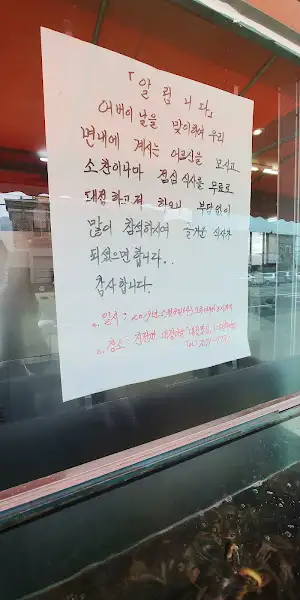 「알 립 니 다」
어버이 날을 맞이하여 우리
면내에 계시는 어르신을 모시고
소찬이나마 점심 식사를 무료로
대접 하고져 하오니 부담없이
많이 참석하시여 즐거운 식사가
되셨으면 합니다..
감사합니다.
일시 :
장소 :